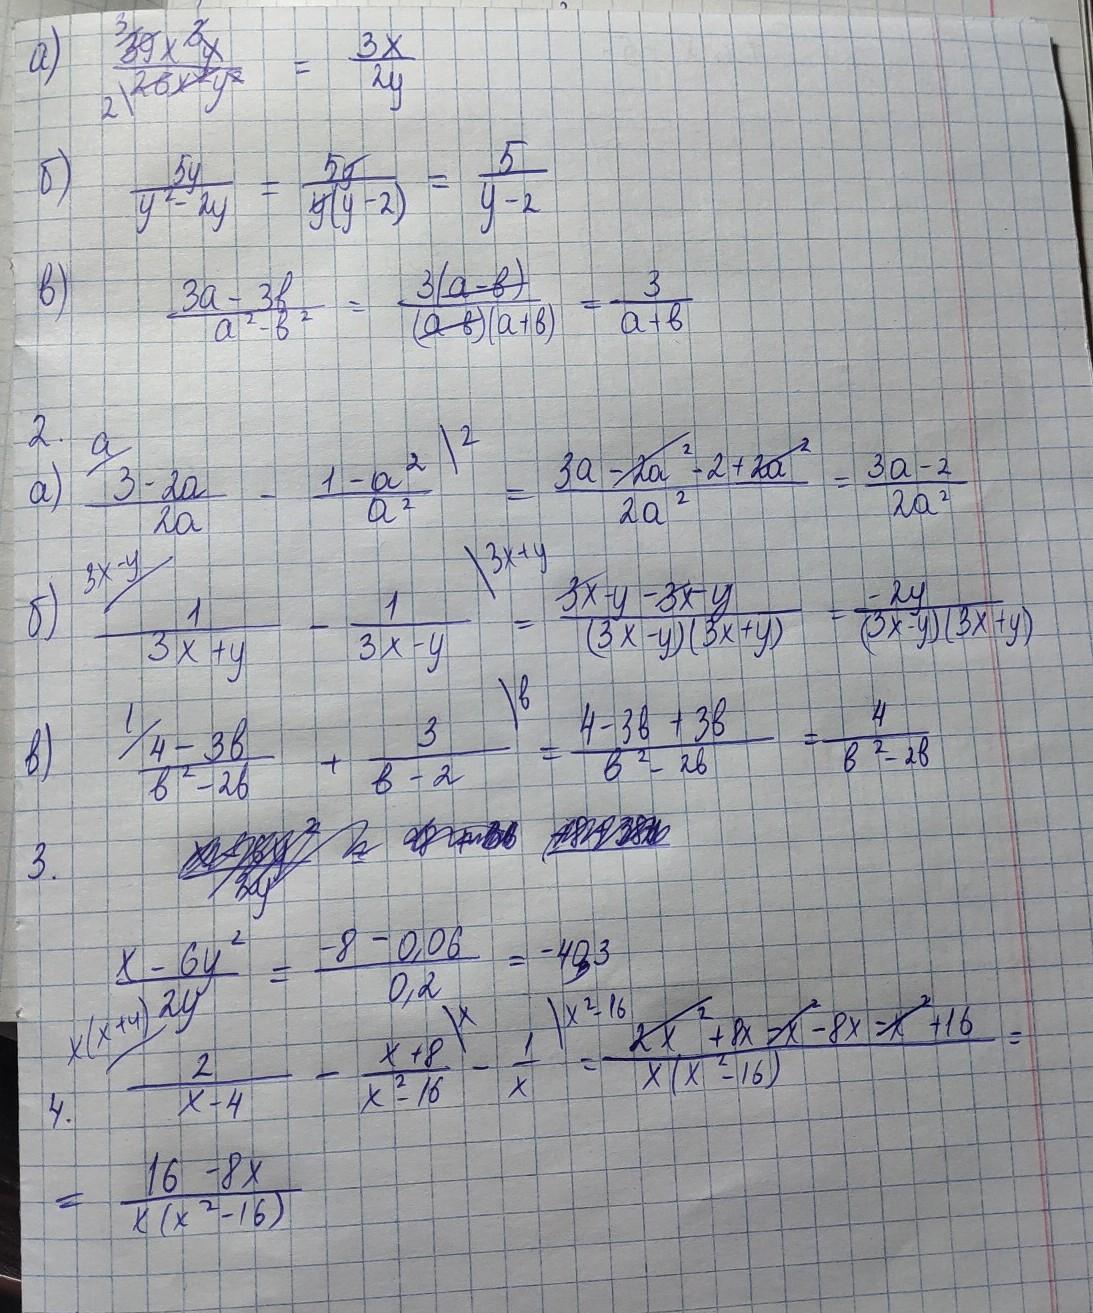 а) 39x³y / 26x²y² = 3x / 2y
3
2
б) 5y / y² - 2y = 5y / y(y - 2) = 5 / y - 2
в) 3a - 3b / a² - b² = 3(a - b) / (a - b)(a + b) = 3 / a + b
2.
а) 3 - 2a / 2a - 1 - a² / a² = 3a - 2a² - 2 + 2a² / 2a² = 3a - 2 / 2a²
a \2
б) 1 / 3x + y - 1 / 3x - y = 3x - y - 3x - y / (3x - y)(3x + y) = - 2y / (3x - y)(3x + y)
3x - y \3x + y
в) 4 - 3b / b² - 2b + 3 / b - 2 = 4 - 3b + 3b / b² - 2b = 4 / b² - 2b
1/ \b
3.
x - 6y² / 2y = -8 - 0,06 / 0,2 = -40,3
x(x+4) \x \x² - 16
4. 2 / x - 4 - x + 8 / x² - 16 - 1 / x = 2x² + 8x - x² - 8x - x² + 16 / x(x² - 16) =
= 16 - 8x / x(x² - 16)